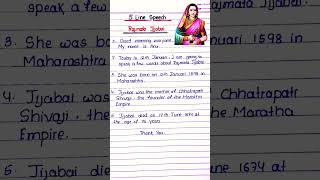 5 Line Speech
Rajmata Jijabai
1. Good morning everyone,
My name is Anu.
2. Today is 12th Januari. I am going to
speak a few words about Rajmata Jijabai
3. She was born on 12th Januari 1598 in
Maharashtra.
4. Jijabai was the mother of Chhatrapatr
Shivaji, the founder of the Maratha
Empire.
5. Jijabai died on 17th June 1674 at
the age of 76 years
Thank You
speak a few
3. She was bo
Maharashtra
4. Jijabai w
Shivaji, the
Empire.
5. Jijabai died
Rajmata Jijabai
Januari 1598 in
Chhatrapatr
the Maratha
June 1674 at